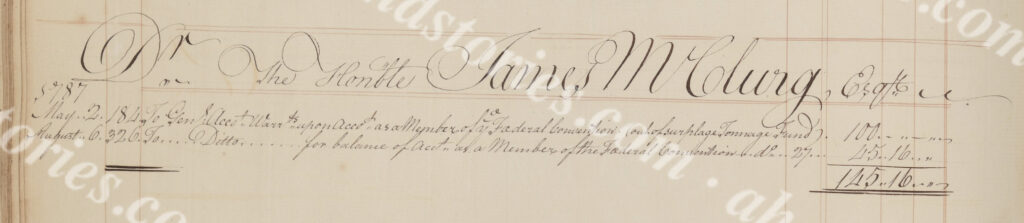 Dr The Honble James McClurg, Esqr
1787
May 2. 184 To Genl Acct Warrts upon Acct as a Member of ye Faderal Convention (out of surplage Tonnage Fund) 100
August 6. 326 To Ditto for balance of Acct as a Member of the Faderal Convention do 27 45 16
145 16